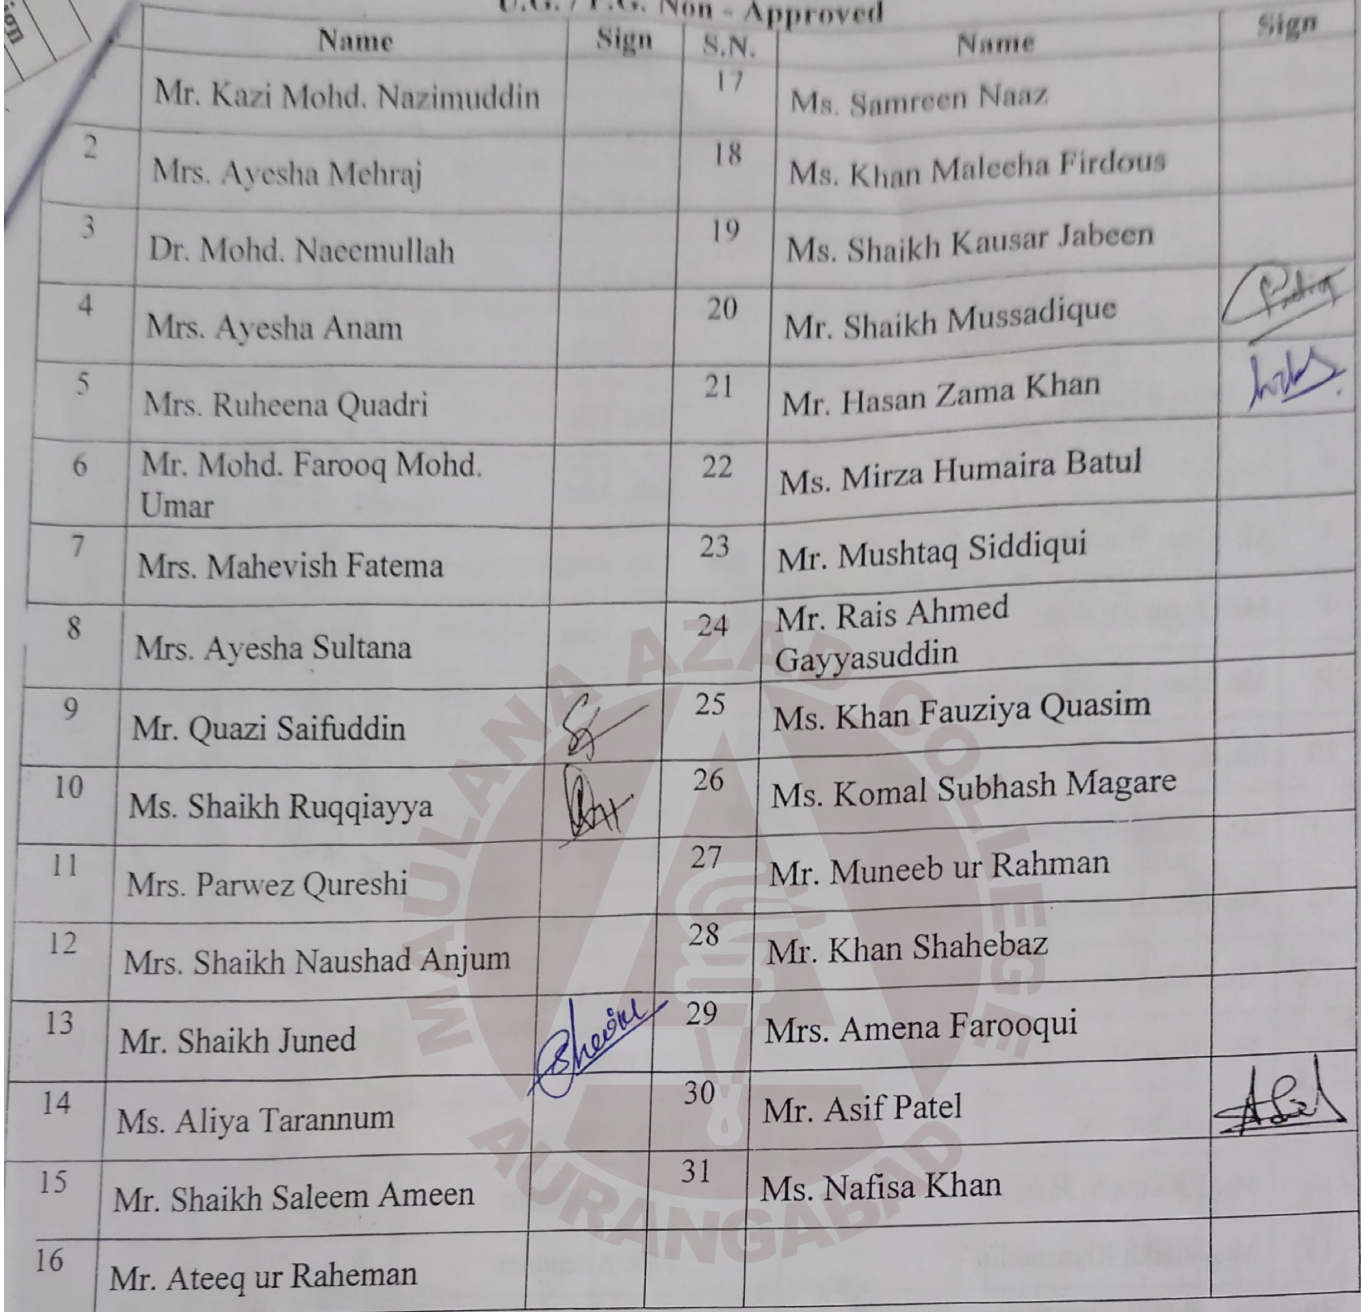 U.G. / P.G. Non - Approved
Name Sign S.N. Name Sign
Mr. Kazi Mohd. Nazimuddin 17 Ms. Samreen Naaz
2 Mrs. Ayesha Mehraj 18 Ms. Khan Maleeha Firdous
3 Dr. Mohd. Naeemullah 19 Ms. Shaikh Kausar Jabeen
4 Mrs. Ayesha Anam 20 Mr. Shaikh Mussadique
5 Mrs. Ruheena Quadri 21 Mr. Hasan Zama Khan
6 Mr. Mohd. Farooq Mohd. 22 Ms. Mirza Humaira Batul
Umar
7 Mrs. Mahevish Fatema 23 Mr. Mushtaq Siddiqui
8 Mrs. Ayesha Sultana 24 Mr. Rais Ahmed
Gayyasuddin
9 Mr. Quazi Saifuddin 25 Ms. Khan Fauziya Quasim
10 Ms. Shaikh Ruqqiayya 26 Ms. Komal Subhash Magare
11 Mrs. Parwez Qureshi 27 Mr. Muneeb ur Rahman
12 Mrs. Shaikh Naushad Anjum 28 Mr. Khan Shahebaz
13 Mr. Shaikh Juned 29 Mrs. Amena Farooqui
14 Ms. Aliya Tarannum 30 Mr. Asif Patel
15 Mr. Shaikh Saleem Ameen 31 Ms. Nafisa Khan
16 Mr. Ateeq ur Raheman
MAULANA AZAD COLLEGE
AURANGABAD